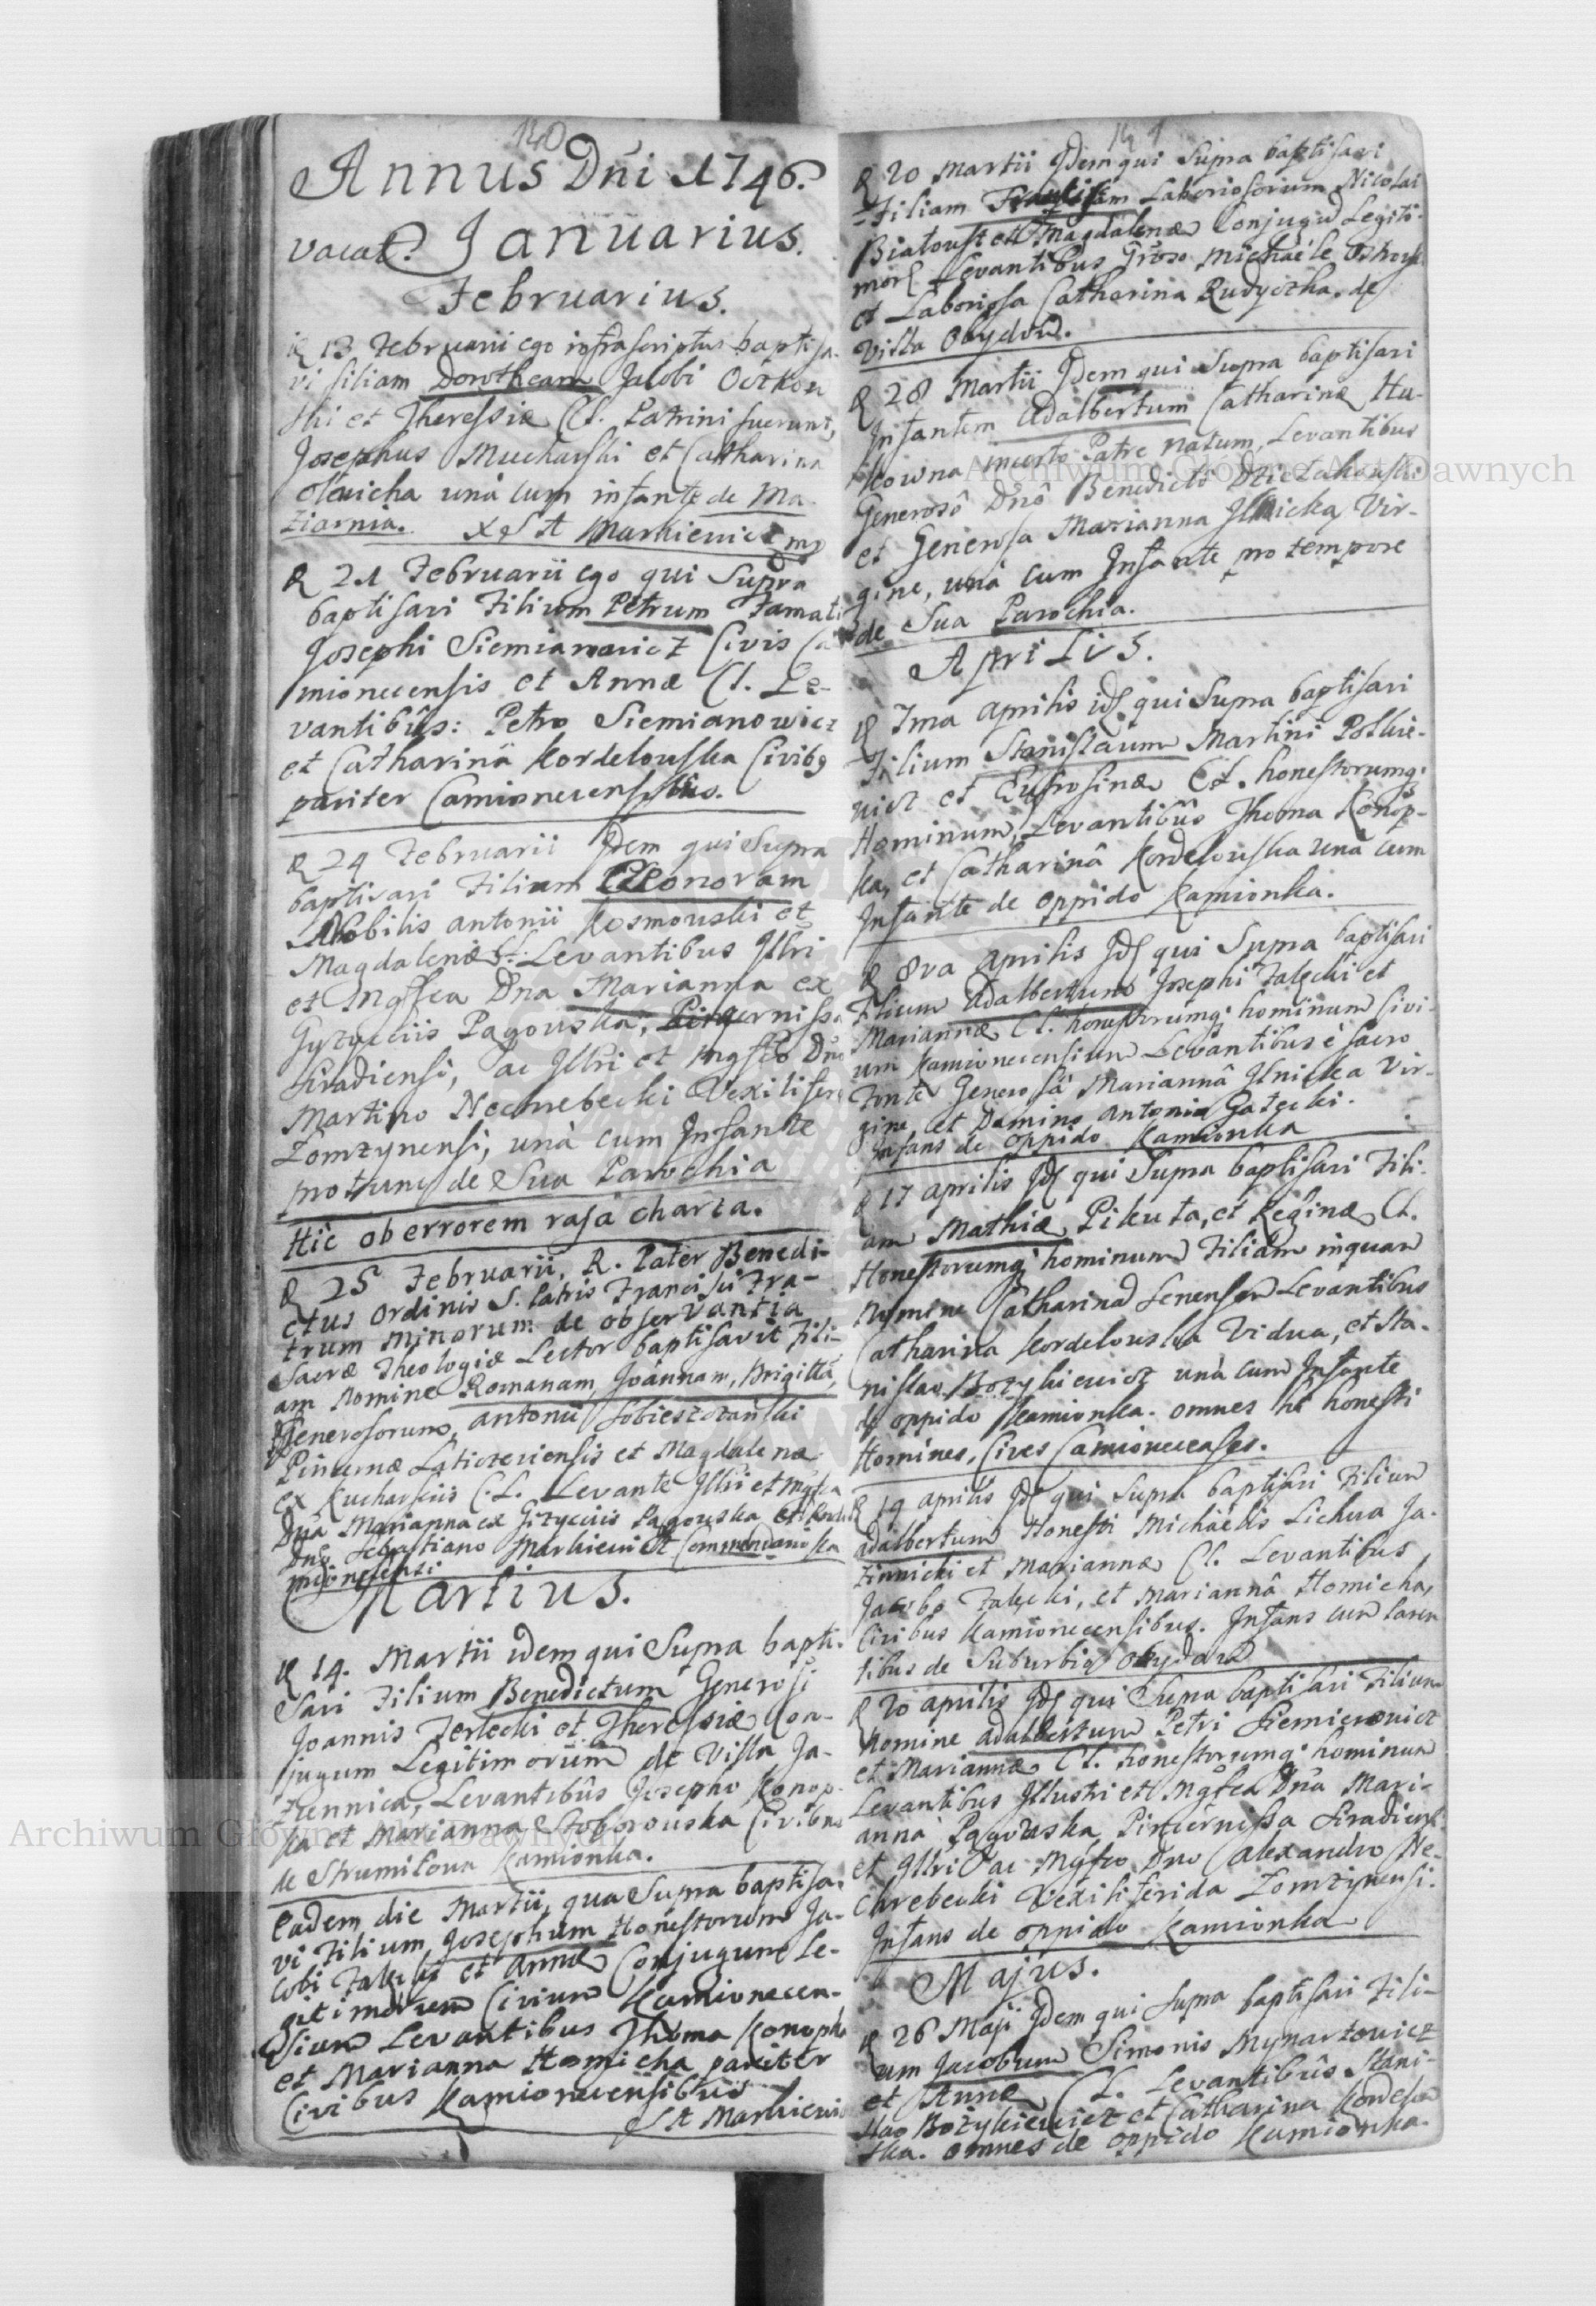 140
Annus Dńi 1746.
vacat. Januarius.
Februarius.
13 Februarii ego infrascriptus baptisa-
vi filiam Dorotheam Jacobi Oczkow
ski et Theressiæ C.L. Patrini fuerunt,
Josephus Mucharski et Catharina
una cum infante de Ma
ziarnia. X S A Markiewicz mp
21 Februarii ego qui Supra
baptisavi Filium Petrum Famati
Josephi Siemianowicz Civis Ca
mionecensis et Annæ C.L. Le-
vantibûs: Petro Siemianowicz
et Catharinâ Kordelouska Civibg
pariter Camionecensibus.
24 Februarii Jdem qui Supra
baptisavi Filiam Eleonoram
Nobilis Antonii Kosmowski et
Magdalenæ C.L. Levantibus Jllri
et Mgfca Dna Marianna ex
Gyzyciis Pagouska, Pincernissa
Siradiensi, ac Jllri et Mgfco Dno
Martino Niechrebecki Vexilifero
Lomzynensi, unà cum Infante
pro tunc de Sua Parochia
Hîc ob errorem rasa charta.
25 Februarii, R. Pater Benedi-
ctus Ordinis S. Patris Francisci Fra-
trum Minorum de observantia
Sacræ Theologiæ Lector baptisavit Fili-
am Nomine Romanam, Joannam, Brigittã,
Generosorum, Antonii Sobieszczański
Pincernæ Laticzeviensis et Magdalenæ
ex Kucharsciis C.L. Levante Jllri et Mgfca
Dna Marianna ex Gizyciis Pagouska et
Dno Sebastiano Markiewicz Commendario Ka
mionecensi
Martius.
14. Martii idem qui Supra bapti-
savi Filium Benedictum Generosi
Joannis Terlecki et Theressiæ Con-
jugum Legitimorum de Villa Ja-
zienica, Levantibûs Josepho Konop-
ka et Marianna Stoborouska Civibus
de Strumilowa Kamionka.
Eadem die Martii, qua Supra baptisa-
vi Filium Josephum Honestorum Ja-
cobi et Annæ Conjugum Le-
gitimorum Civium Kamionecen-
sium Levantibus Thoma Konopka
et Marianna Homicha pariter
Civibus Kamionecensibus
S A Markiewi
141
20 Martii Jdem qui Supra baptisavi
Filiam Laboriosorum Nicolai
et Magdalenæ Conjugũ Legiti-
mor Levantibus Gñoso Michaële
et Laboriosa Catharina Rudyczka. de
Villa Obydow.
28 Martii Jdem qui Supra baptisavi
Infantem Adalbertum Catharinæ Hu-
kowna incerto Patre natum, Levantibus
Generosô Dnô Benedicto
et Generosa Marianna Jlnicka Vir-
gine, unà cum Infante pro tempore
de Sua Parochia.
Aprilis.
7ma Aprilis id qui Supra baptisavi
Filium Stanislaum Martini Poslwie-
wicz et Eufrosinæ C.L. honestorumq
Hominum, Levantibûs Thoma Konop-
ka, et Catharinâ Kordelouska unà cum
Infante de oppido Kamionka.
8va Aprilis Jd qui Supra baptisavi
Filium Adalbertum Josephi Zalęcki et
Mariannæ C.L. honestorumq hominum Civi-
um Kamionecensium Levantibus è Sacro
Fonte Generosâ Mariannâ Jlnicka Vir-
gine, et Domino Antonio Gałecki.
Infans de oppido Kamionka
17 Aprilis Jd qui Supra baptisavi Fili-
am Mathiæ Pikuta, et Reginæ C.L.
Honestorumq hominum Filiam inquam
Nomine Catharinã Senensem Levantibus
Catharina Kordelouska Vidua, et Sta-
nislao Bozykiewicz unà cum Infante
de oppido Kamionka. omnes hi honesti
Homines, Cives Camionecenses.
19 Aprilis Jd qui Supra baptisavi Filium
Adalbertum Honesti Michaëlis Lichwa Ja-
zinnicki et Mariannæ C.L. Levantibus
Jacobo Zalęcki, et Mariannâ Homicha,
Civibus Kamionecensibus. Infans cum Paren
tibus de Suburbio Obydow
20 Aprilis Jd qui Supra baptisavi Filium
Nomine Adalbertum Petri Siemienowicz
et Mariannæ C.L. honestorumq hominum
Levantibus Jllustri et Mgfca Dña Mari-
anna Pagowska Pincernissa Siradiensi
et Jllri ac Mgfco Dno Alexandro Nie-
chrebecki Vexiliferida Lomzynensi.
Infans de oppido Kamionka
Majus.
26 Maji Jdem qui Supra baptisavi Fili-
um Jacobum Simonis Mynartowicz
et Annæ C.L. Levantibûs Stani-
slao Bożykiewicz et Catharina Kordelou
ska. omnes de oppido Kamionka.
Archiwum Główne Akt Dawnych
Archiwum Główne Akt Dawnych